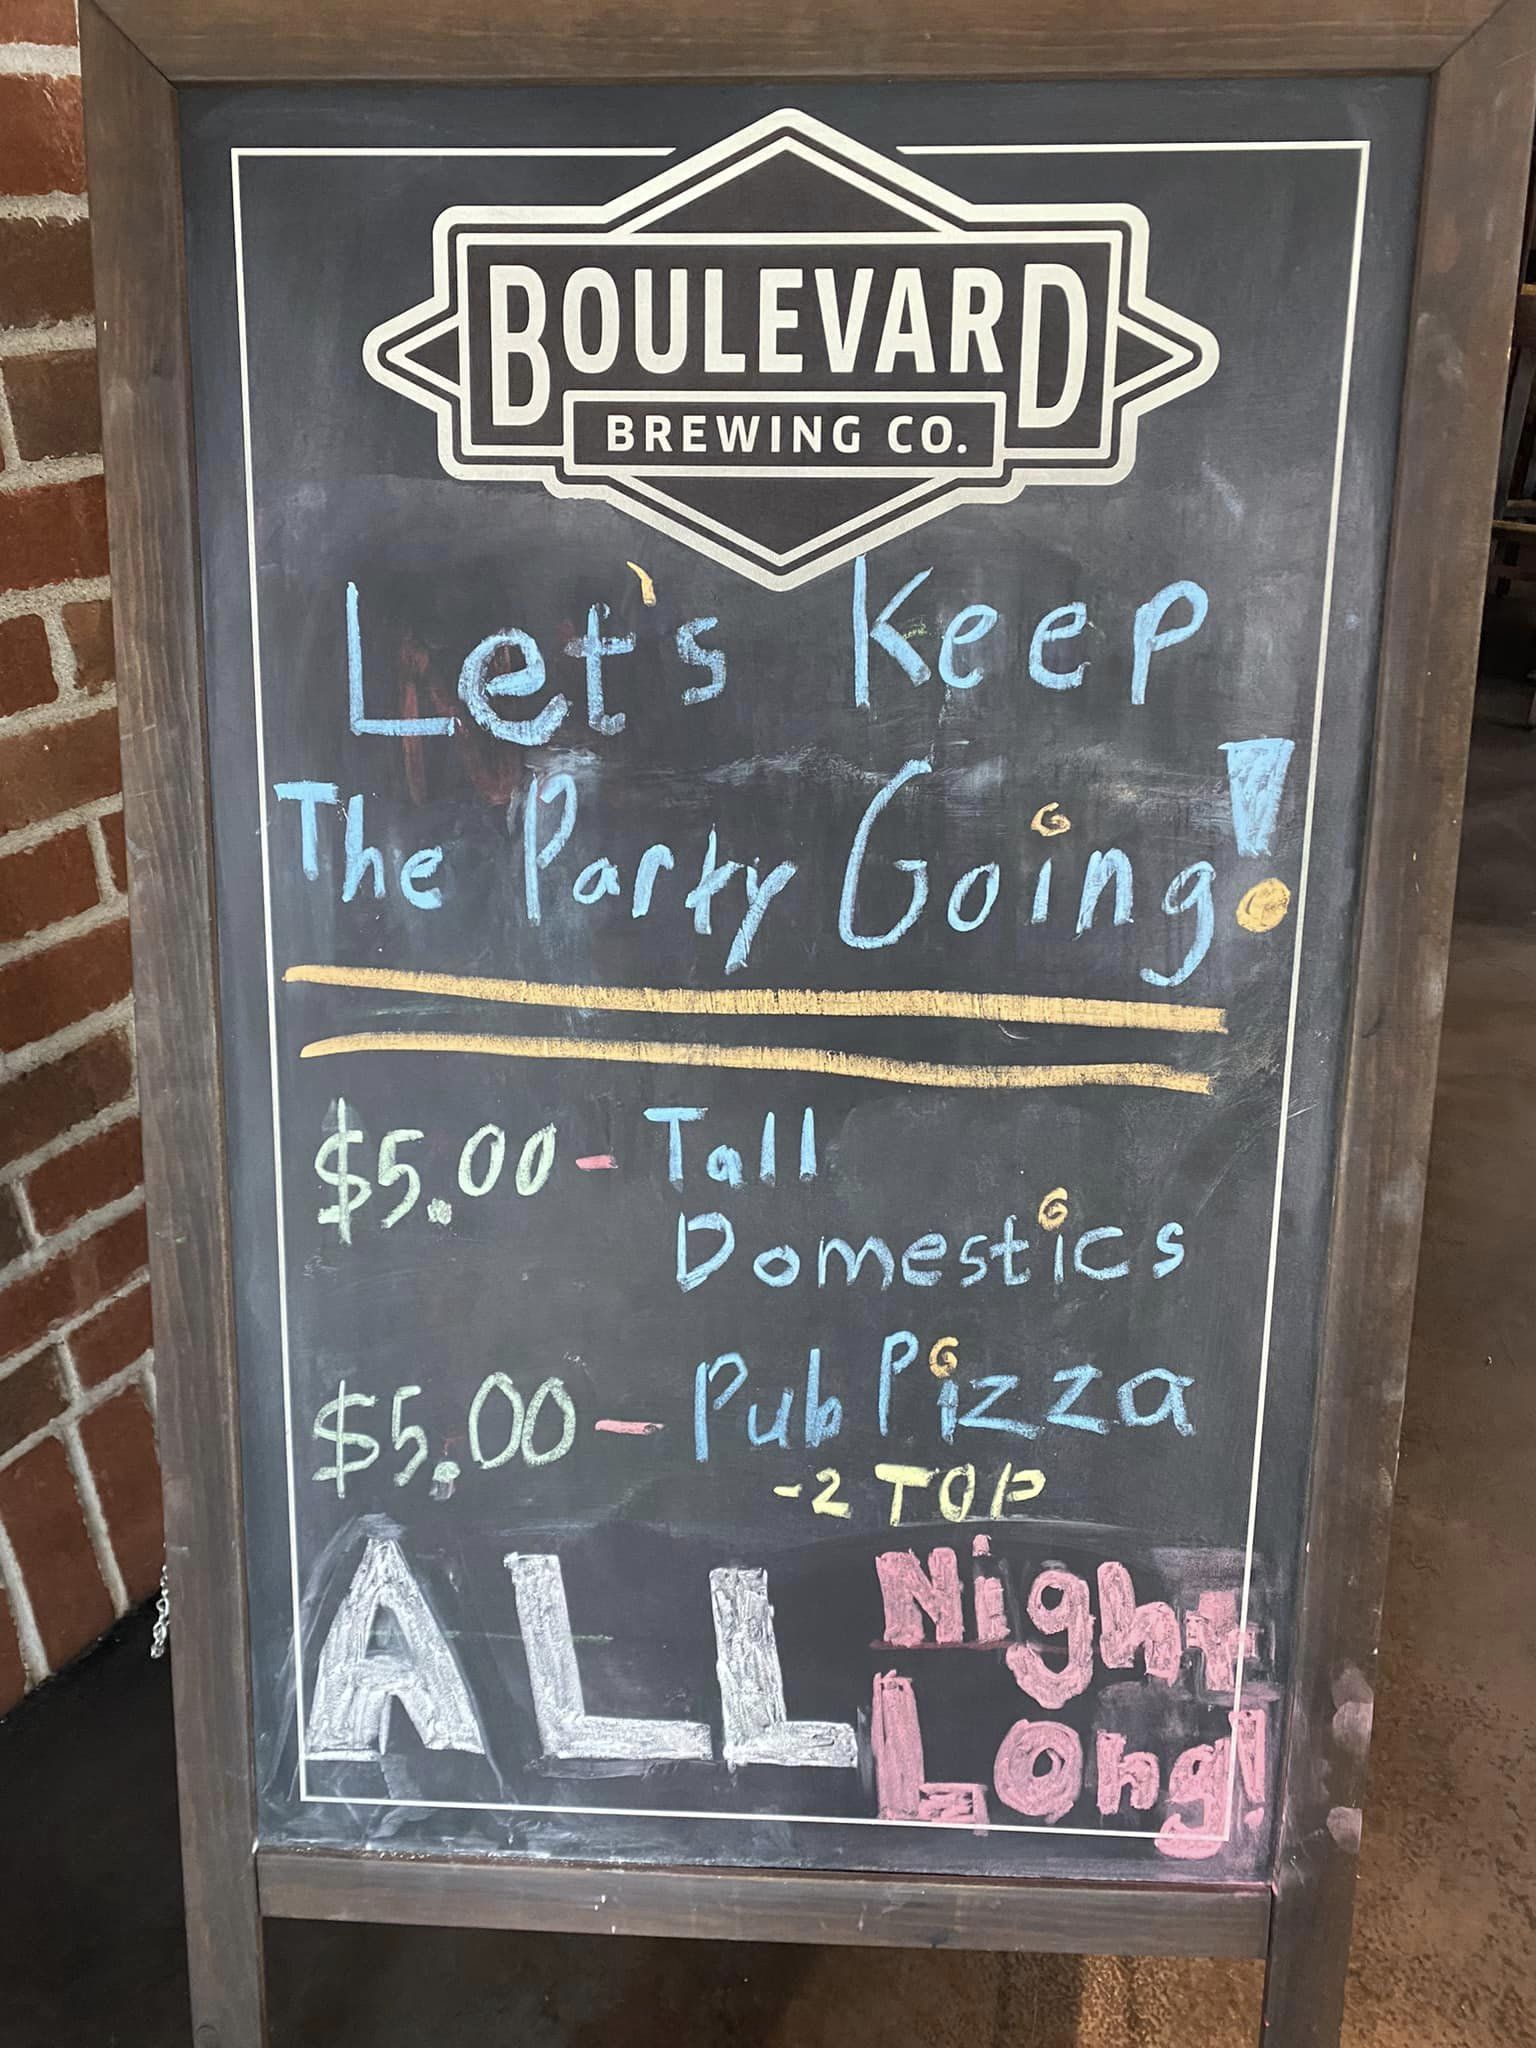 BOULEVARD
BREWING CO.
Let's Keep
The Party Going!
$5.00 - Tall
Domestics
$5.00 - Pub Pizza
-2 TOP
ALL Night
Long!